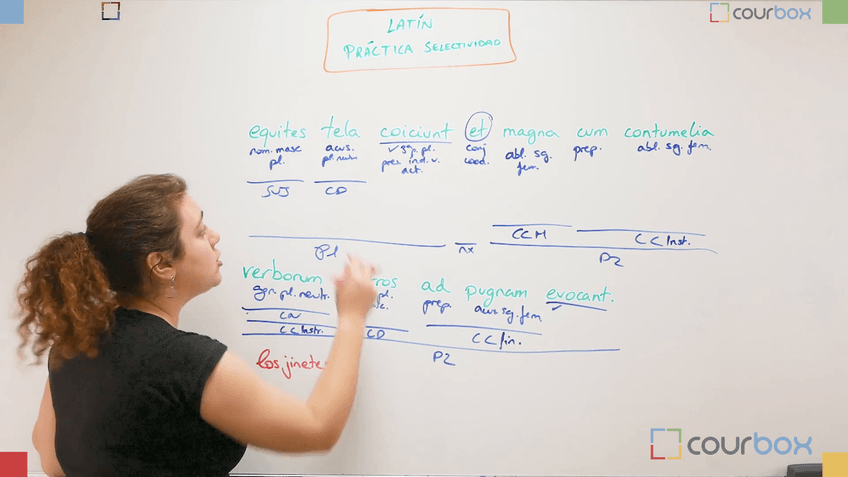 courbox
LATÍN
PRÁCTICA SELECTIVIDAD
equites tela coiciunt et magna cum contumelia
nom. masc pl. acus. pl. neutro pres. ind. v. act. conj coord. abl. sg. fem. prep. abl. sg. fem.
SUJ CD
CCM CC Inst.
P1 nx P2
verborum ad pugnam evocant.
gen. pl. neutr. pl. prep. acus sg. fem
CN
CC Instr. CD CC fin.
P2
los jinete
courbox